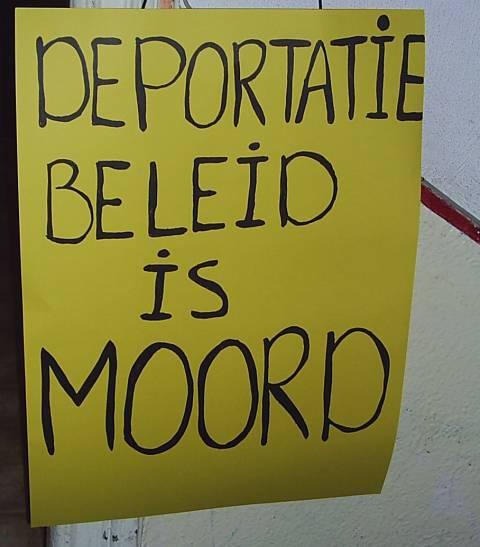 DEPORTATİE
BELEİD
İS
MOORD